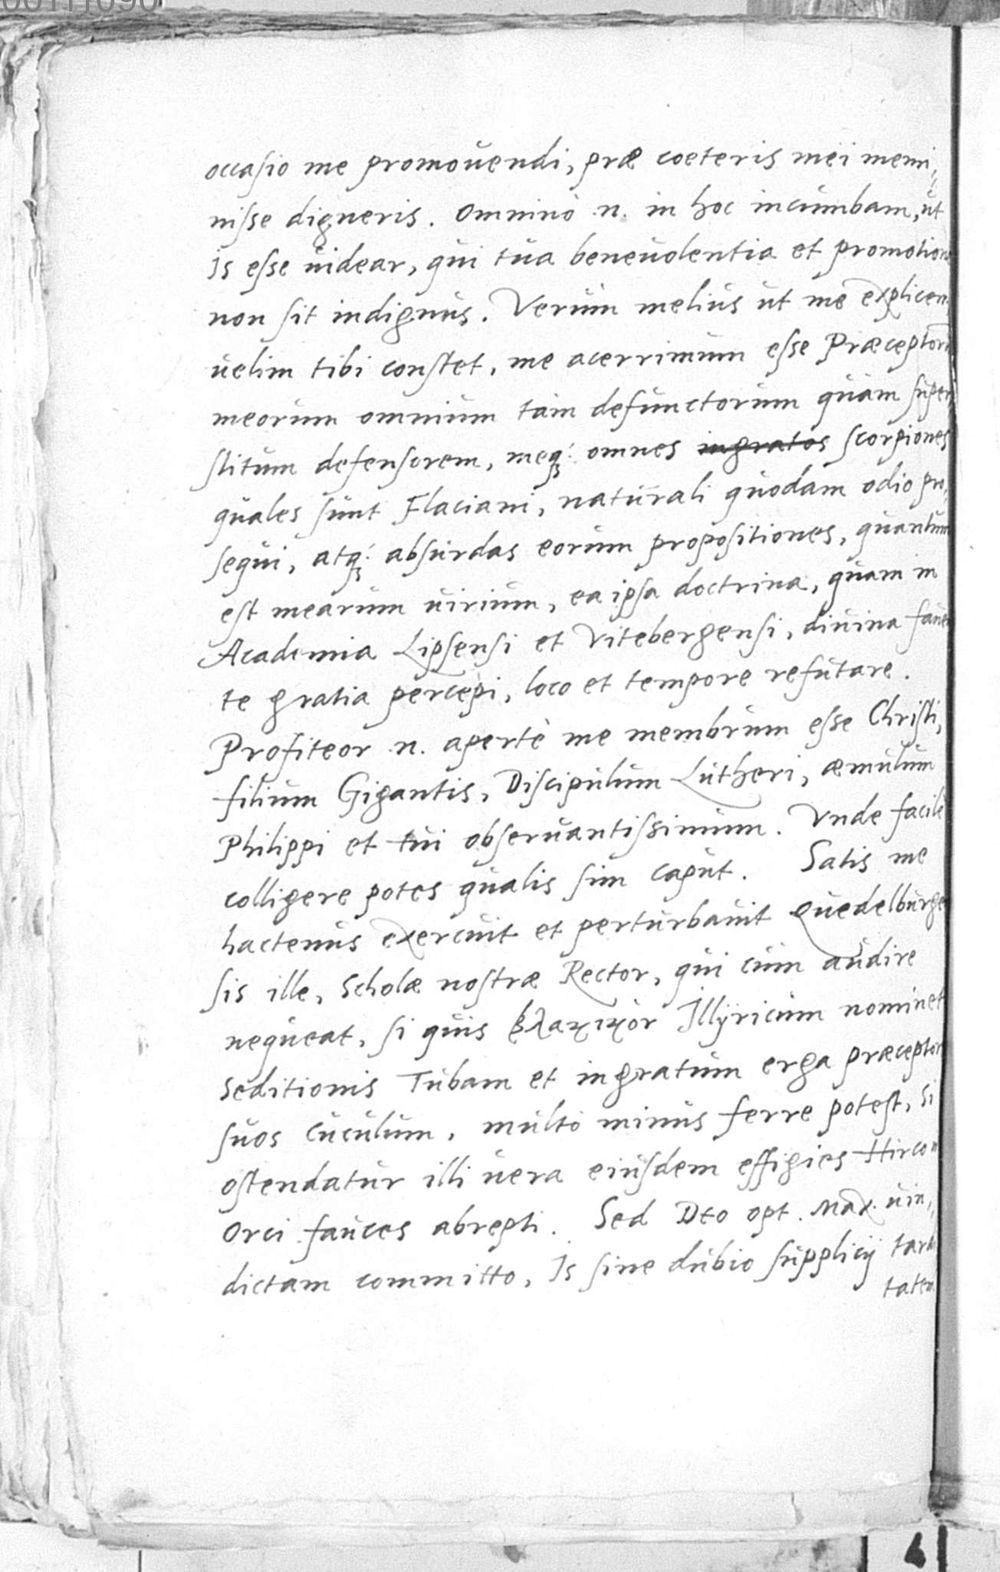 occasio me promouendi, præ coeteris mei memi,
nisse digneris. Omninò .n. in hoc incumbam, ut
Is esse uidear, qui tua beneuolentia et promotion
non sit indignus. Verùm meliùs ut me explicem
uelim tibi constet, me acerrimum esse Præceptorū
meorum omnium tàm defunctorum quàm super
stitum defensorem, meq́ꝫ omnes ingratos scorpiones
quales sunt Flaciani, naturali quodam odio pro,
sequi, atq́ꝫ absurdas eorum propositiones, quantum
est mearum uirium, ea ipsa doctrina, quam in
Academia Lipsensi et Vitebergensi, diuina fauen
te gratia percepi, loco et tempore refutare.
Profiteor .n. apertè me membrum esse Christi,
filium Gigantis, Discipulum Lutheri, æmulum
Philippi et tui obseruantissimum. Vnde facilè
colligere potes qualis sim caput. Satis me
hactenus exercuit et perturbauit Quedelburge
sis ille, Scholæ nostræ Rector, qui cùm audire
nequeat, si quis βλακικὸν Illÿricum nominet
Seditionis Tubam et ingratum erga præceptor
suos Cuculum, multò minus ferre potest, Si
ostendatur illi uera eiusdem effigies Hirco in
Orci fauces abrepti. Sed Deo opt. Max. uin,
dictam committo, Is sine dubio supplicij tardi
tatem